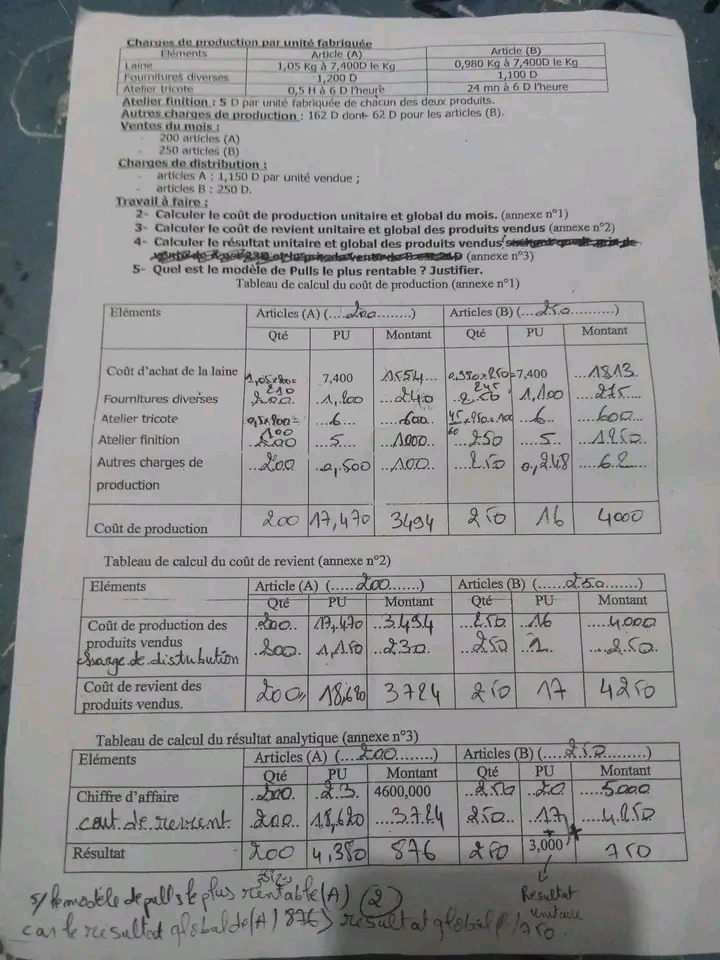 Charges de production par unité fabriquée
Eléments Article (A) Article (B)
Laine 1,05 Kg à 7,400D le Kg 0,980 Kg à 7,400D le Kg
Fournitures diverses 1,200 D 1,100 D
Atelier tricote 0,5 H à 6 D l'heure 24 mn à 6 D l'heure
Atelier finition : 5 D par unité fabriquée de chacun des deux produits.
Autres charges de production : 162 D dont 62 D pour les articles (B).
Ventes du mois :
- 200 articles (A)
- 250 articles (B)
Charges de distribution :
- articles A : 1,150 D par unité vendue ;
- articles B : 250 D.
Travail à faire :
2- Calculer le coût de production unitaire et global du mois. (annexe n°1)
3- Calculer le coût de revient unitaire et global des produits vendus (annexe n°2)
4- Calculer le résultat unitaire et global des produits vendus
(annexe n°3)
5- Quel est le modèle de Pulls le plus rentable ? Justifier.
Tableau de calcul du coût de production (annexe n°1)
Eléments Articles (A) (...200........) Articles (B) (...250..........)
Qté PU Montant Qté PU Montant
Coût d'achat de la laine 210 7,400 1554 245 7,400 1813
Fournitures diverses 200 240 250 1,100 275
Atelier tricote 100 6 600 100 6 600
Atelier finition 200 5 1000 250 5 1250
Autres charges de production 200 0,500 100 250 0,248 62
Coût de production 200 17,470 3494 250 16 4000
Tableau de calcul du coût de revient (annexe n°2)
Eléments Article (A) (.....200.......) Articles (B) (......250.......)
Qté PU Montant Qté PU Montant
Coût de production des produits vendus 200 17,470 3.494 250 16 4.000
charge de distribution 200 1,150 230 250 1 250
Coût de revient des produits vendus. 200 18,620 3724 250 17 4250
Tableau de calcul du résultat analytique (annexe n°3)
Eléments Articles (A) (....200..........) Articles (B) (....250..........)
Qté PU Montant Qté PU Montant
Chiffre d'affaire 200 23 4600,000 250 20 5000
cout de revient 200 18,620 3724 250 17 4250
Résultat 200 4,380 876 250 3,000 750
5/ le modèle de pulls le plus rentable (A) (2)
Resultat
unitaire
car le resultat global de (A) 876 > resultat global 750